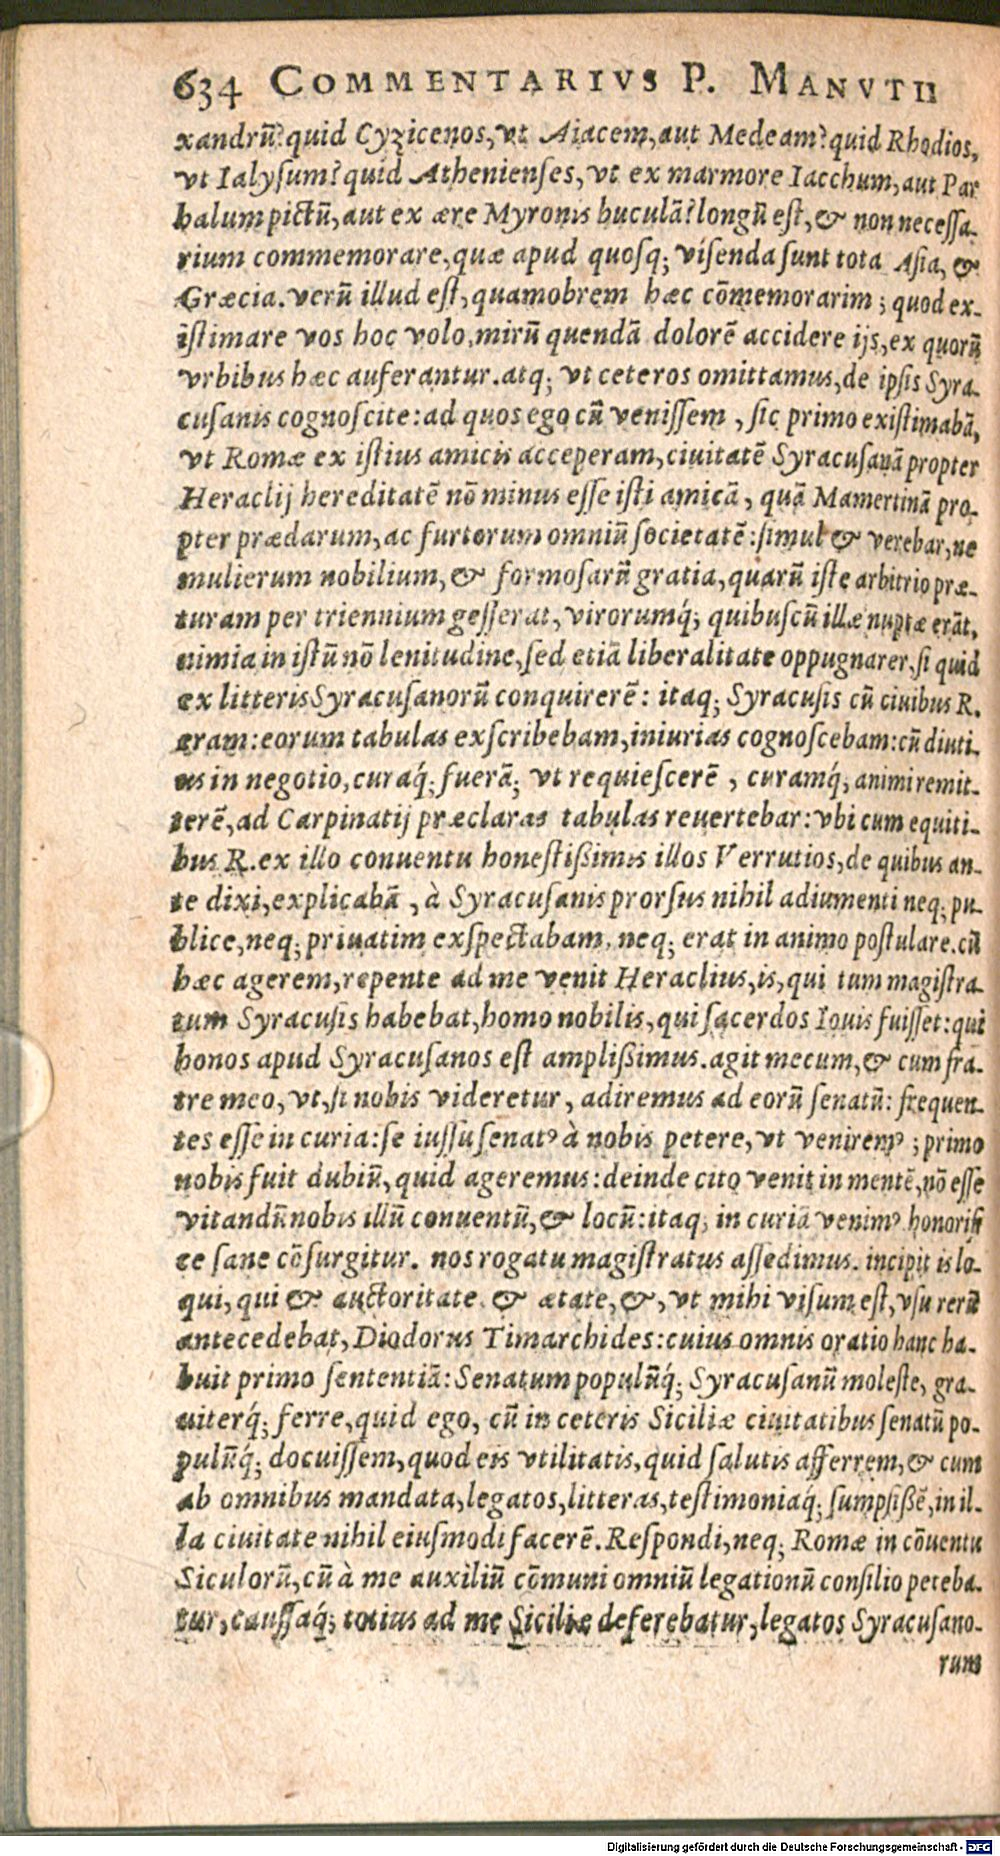 634 COMMENTARIVS P. MANVTII
xandrũ? quid Cyzicenos, vt Aiacem, aut Medeam? quid Rhodios,
vt Ialysum? quid Athenienses, vt ex marmore Iacchum, aut Par
halum pictũ, aut ex ære Myronis buculã? longũ est, & non necessa-
rium commemorare, quæ apud quosq; visenda sunt tota Asia, &
Græcia. verũ illud est, quamobrem hæc cõmemorarim; quod ex-
istimare vos hoc volo, mirũ quendã dolorẽ accidere ijs, ex quorũ
vrbibus hæc auferantur. atq; vt ceteros omittamus, de ipsis Syra-
cusanis cognoscite: ad quos ego cũ venissem, sic primo existimabã,
vt Romæ ex istius amicis acceperam, ciuitatẽ Syracusanã propter
Heraclij hereditatẽ nõ minus esse isti amicã, quã Mamertinã pro-
pter prædarum, ac furtorum omniũ societatẽ: simul & verebar, ne
mulierum nobilium, & formosarũ gratia, quarũ iste arbitrio præ-
turam per triennium gesserat, virorumq́; quibuscũ illæ nuptæ erãt,
nimia in istũ nõ lenitudine, sed etiã liberalitate oppugnarer, si quid
ex litteris Syracusanorũ conquirerẽ: itaq; Syracusis cũ ciuibus R.
eram: eorum tabulas exscribebam, iniurias cognoscebam: cũ diuti-
us in negotio, curaq́; fuerã; vt requiescerẽ, curamq́; animi remit-
terẽ, ad Carpinatij præclaras tabulas reuertebar: vbi cum equiti-
bus R. ex illo conuentu honestißimis illos Verrutios, de quibus an-
te dixi, explicabã, à Syracusanis prorsus nihil adiumenti neq; pu-
blice, neq; priuatim exspectabam. neq; erat in animo postulare. cũ
hæc agerem, repente ad me venit Heraclius, is, qui tum magistra-
tum Syracusis habebat, homo nobilis, qui sacerdos Iouis fuisset: qui
honos apud Syracusanos est amplißimus. agit mecum, & cum fra-
tre meo, vt, si nobis videretur, adiremus ad eorũ senatũ: frequen-
tes esse in curia: se iussu senatꝰ à nobis petere, vt veniremꝰ; primo
nobis fuit dubiũ, quid ageremus: deinde cito venit in mentẽ, nõ esse
vitandũ nobis illũ conuentũ, & locũ: itaq; in curiã venimꝰ. honorifi
ce sane cõsurgitur. nos rogatu magistratus assedimus. incipit is lo-
qui, qui & auctoritate & ætate, &, vt mihi visum est, vsu rerũ
antecedebat, Diodorus Timarchides: cuius omnis oratio hanc ha-
buit primo sententiã: Senatum populũq́; Syracusanũ moleste, gra-
uiterq́; ferre, quid ego, cũ in ceteris Siciliæ ciuitatibus senatũ po-
pulũq́; docuissem, quod eis vtilitatis, quid salutis afferrem, & cum
ab omnibus mandata, legatos, litteras, testimoniaq́; sumpsißẽ, in il-
la ciuitate nihil eiusmodi facerẽ. Respondi, neq; Romæ in cõuentu
Siculorũ, cũ à me auxiliũ cõmuni omniũ legationũ consilio peteba-
tur, caussaq́; totius ad me Siciliæ deferebatur, legatos Syracusano-
rum
Digitalisierung gefördert durch die Deutsche Forschungsgemeinschaft - DFG